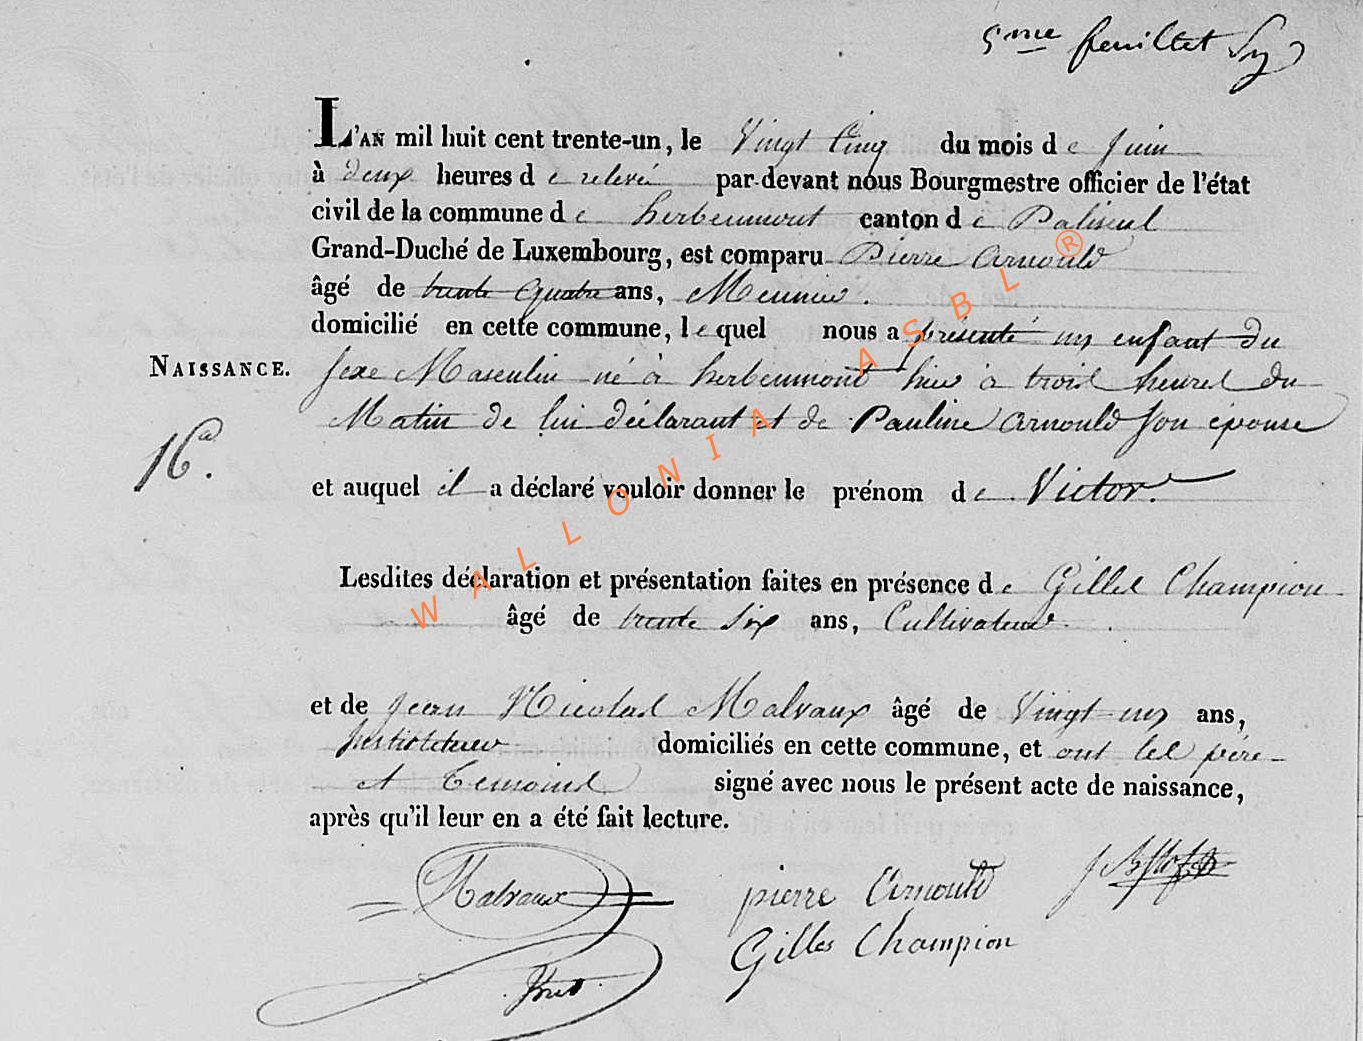 5me feuillet
L'AN mil huit cent trente-un, le Vingt Cinq du mois de Juin
à deux heures de relevé par-devant nous Bourgmestre officier de l'état
civil de la commune de herbeumont canton de Paliseul
Grand-Duché de Luxembourg, est comparu Pierre Arnould
âgé de trente quatre ans, Meunier.
domicilié en cette commune, lequel nous a présenté un enfant du
NAISSANCE. Sexe Masculin né à herbeumont hier à trois heures du
Matin de lui déclarant et de Pauline Arnould son épouse
16.
et auquel il a déclaré vouloir donner le prénom de Victor.
Lesdites déclaration et présentation faites en présence de Gilles Champion
âgé de trente Six ans, Cultivateur.
et de jean Nicolas Malvaux âgé de Vingt un ans,
Instituteur domiciliés en cette commune, et ont les père
et temoins signé avec nous le présent acte de naissance,
après qu'il leur en a été fait lecture.
Malvaux pierre Arnould
Gilles Champion
WALLONIA ASBL ®